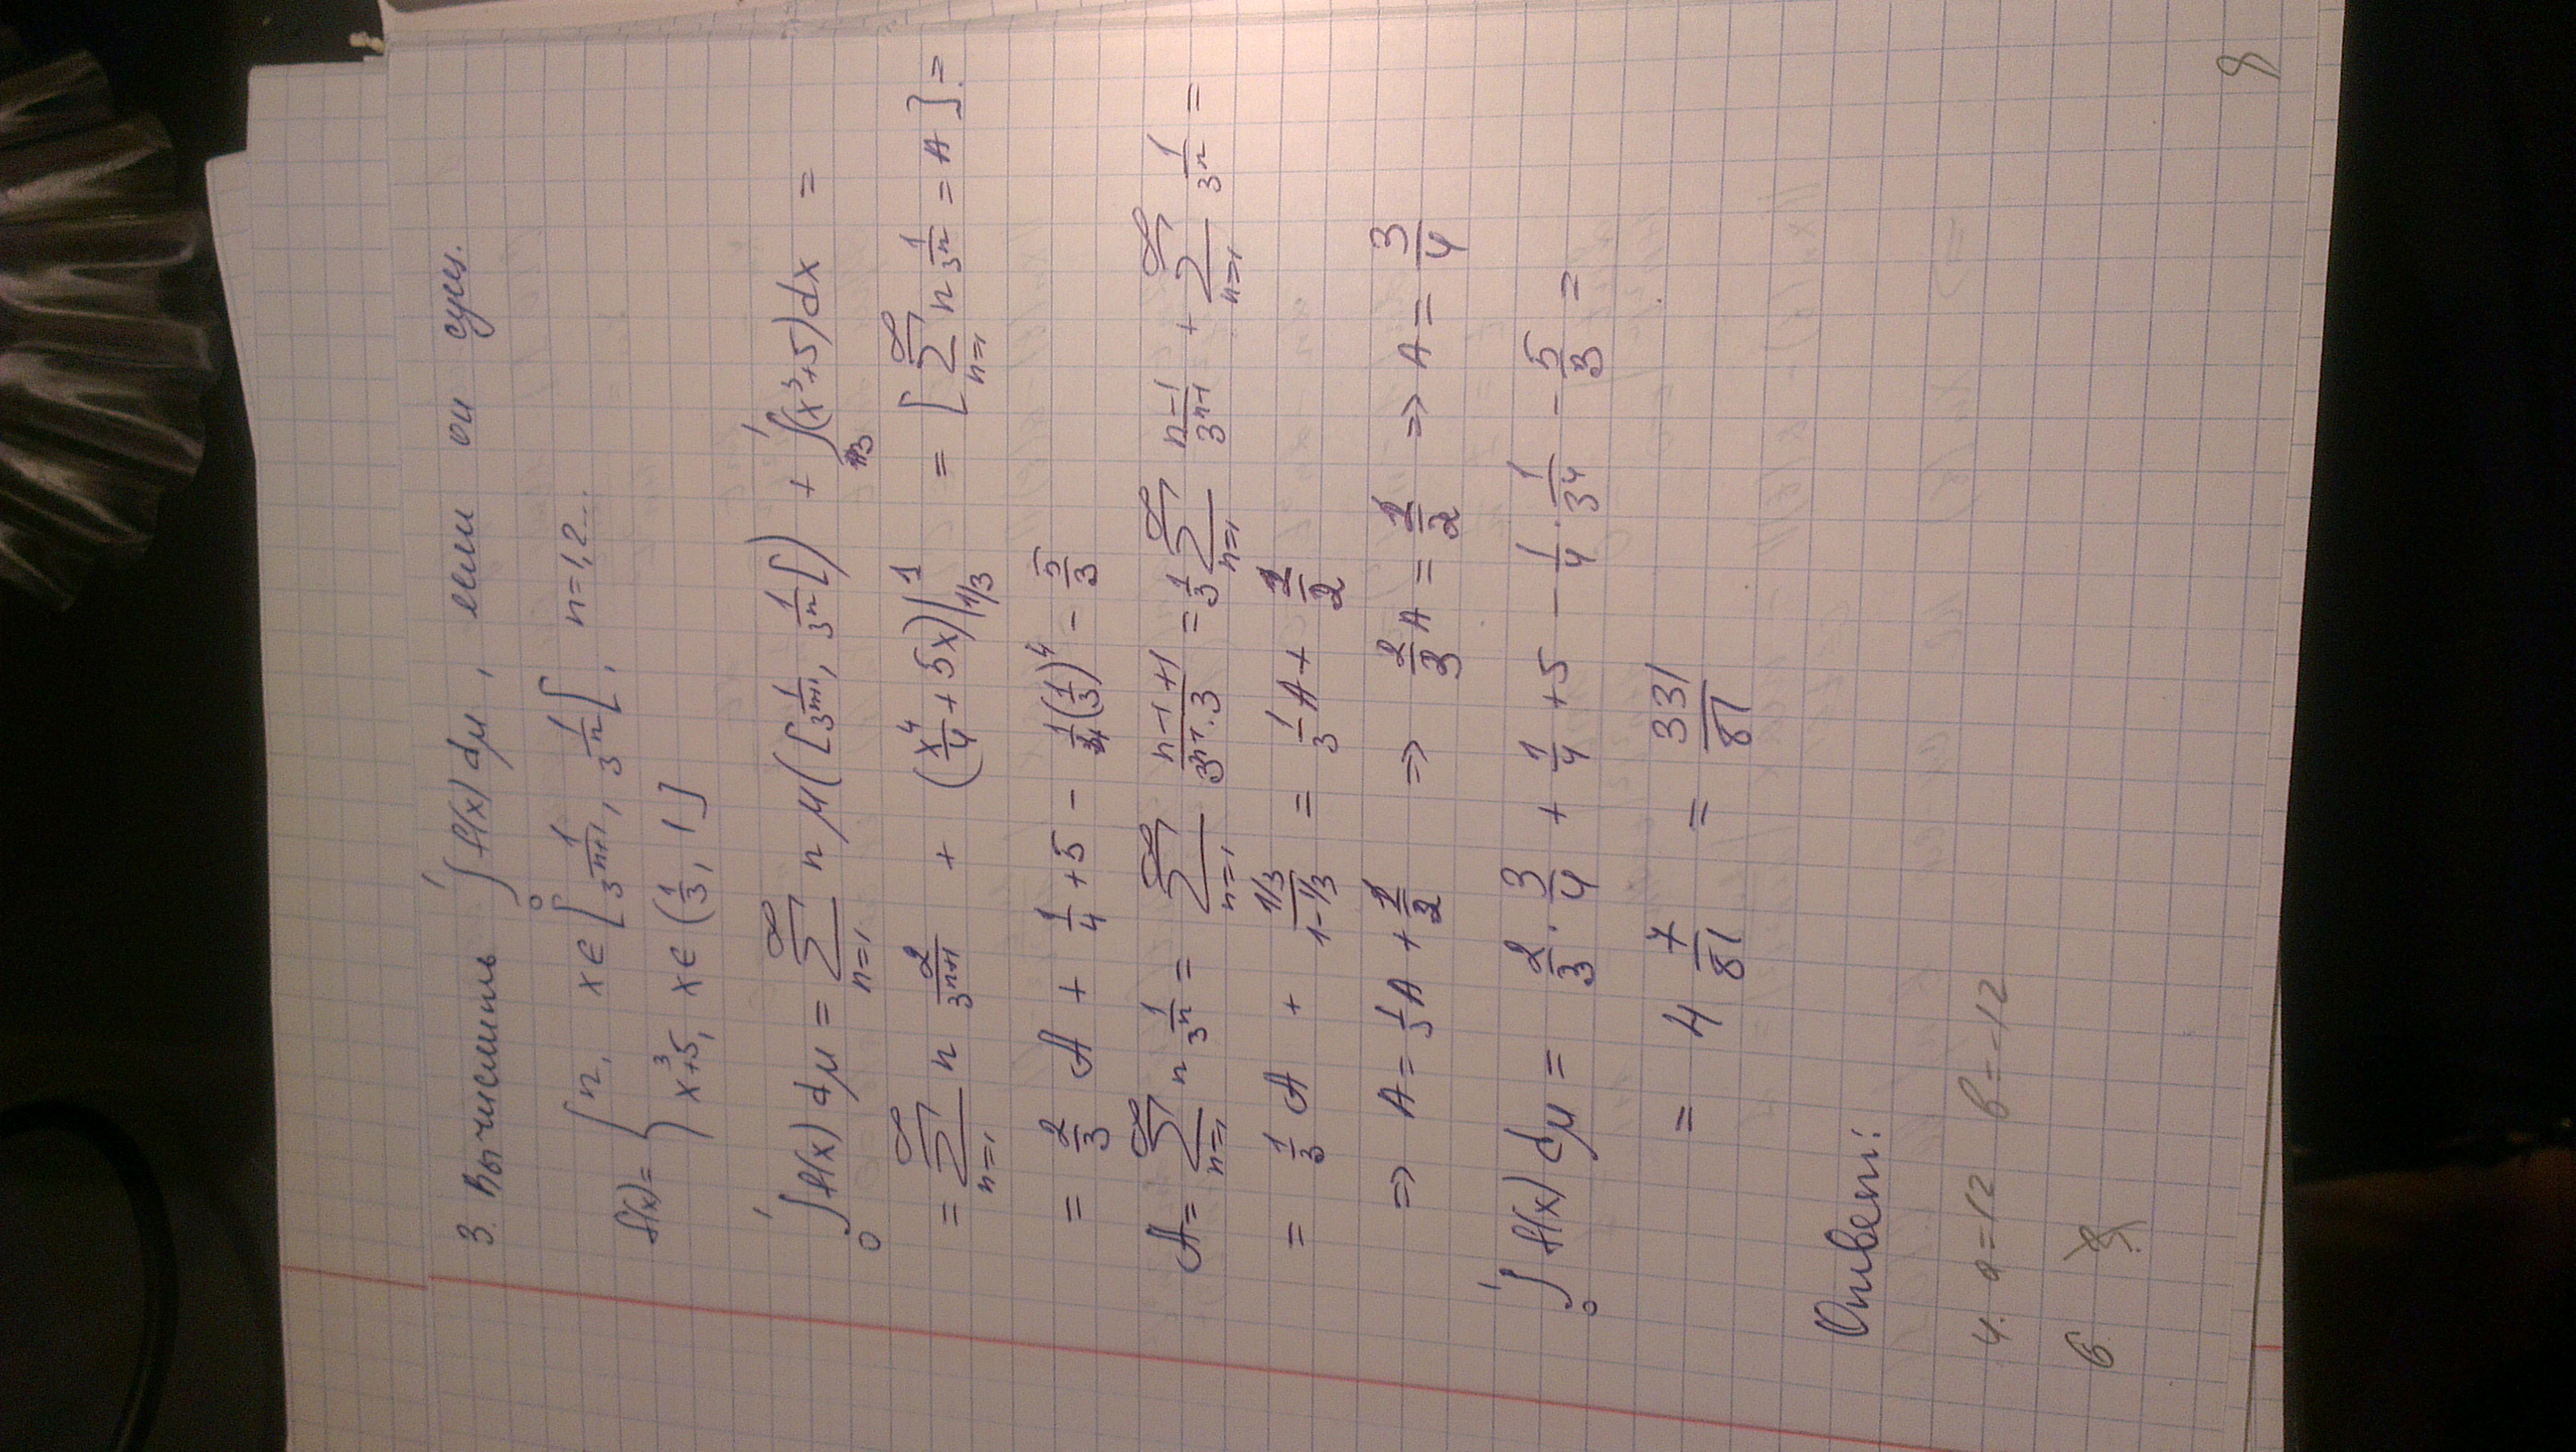 3. Вычислить ∫₀¹ f(x) dμ, если он сущ.
f(x) = { n, x ∈ [1/3ⁿ⁺¹, 1/3ⁿ[, n=1,2...
x³+5, x ∈ (1/3, 1]
∫₀¹ f(x) dμ = ∑ₙ₌₁^∞ n μ([1/3ⁿ⁺¹, 1/3ⁿ[) + ∫₁/₃¹ (x³+5)dx =
= ∑ₙ₌₁^∞ n 2/3ⁿ⁺¹ + (x⁴/4 + 5x)|₁/₃¹ = [∑ₙ₌₁^∞ n 1/3ⁿ = A] =
= 2/3 A + 1/4 + 5 - 1/4(1/3)⁴ - 5/3
A = ∑ₙ₌₁^∞ n 1/3ⁿ = ∑ₙ₌₁^∞ (n-1+1)/(3ⁿ⁻¹·3) = 1/3 ∑ₙ₌₁^∞ (n-1)/3ⁿ⁻¹ + ∑ₙ₌₁^∞ 1/3ⁿ =
= 1/3 A + (1/3)/(1-1/3) = 1/3 A + 1/2
⇒ A = 1/3 A + 1/2 ⇒ 2/3 A = 1/2 ⇒ A = 3/4
∫₀¹ f(x) dμ = 2/3 · 3/4 + 1/4 + 5 - 1/4 · 1/3⁴ - 5/3 =
= 4 7/81 = 331/81
Ответ:
4. a=12 b=-12
6.
8